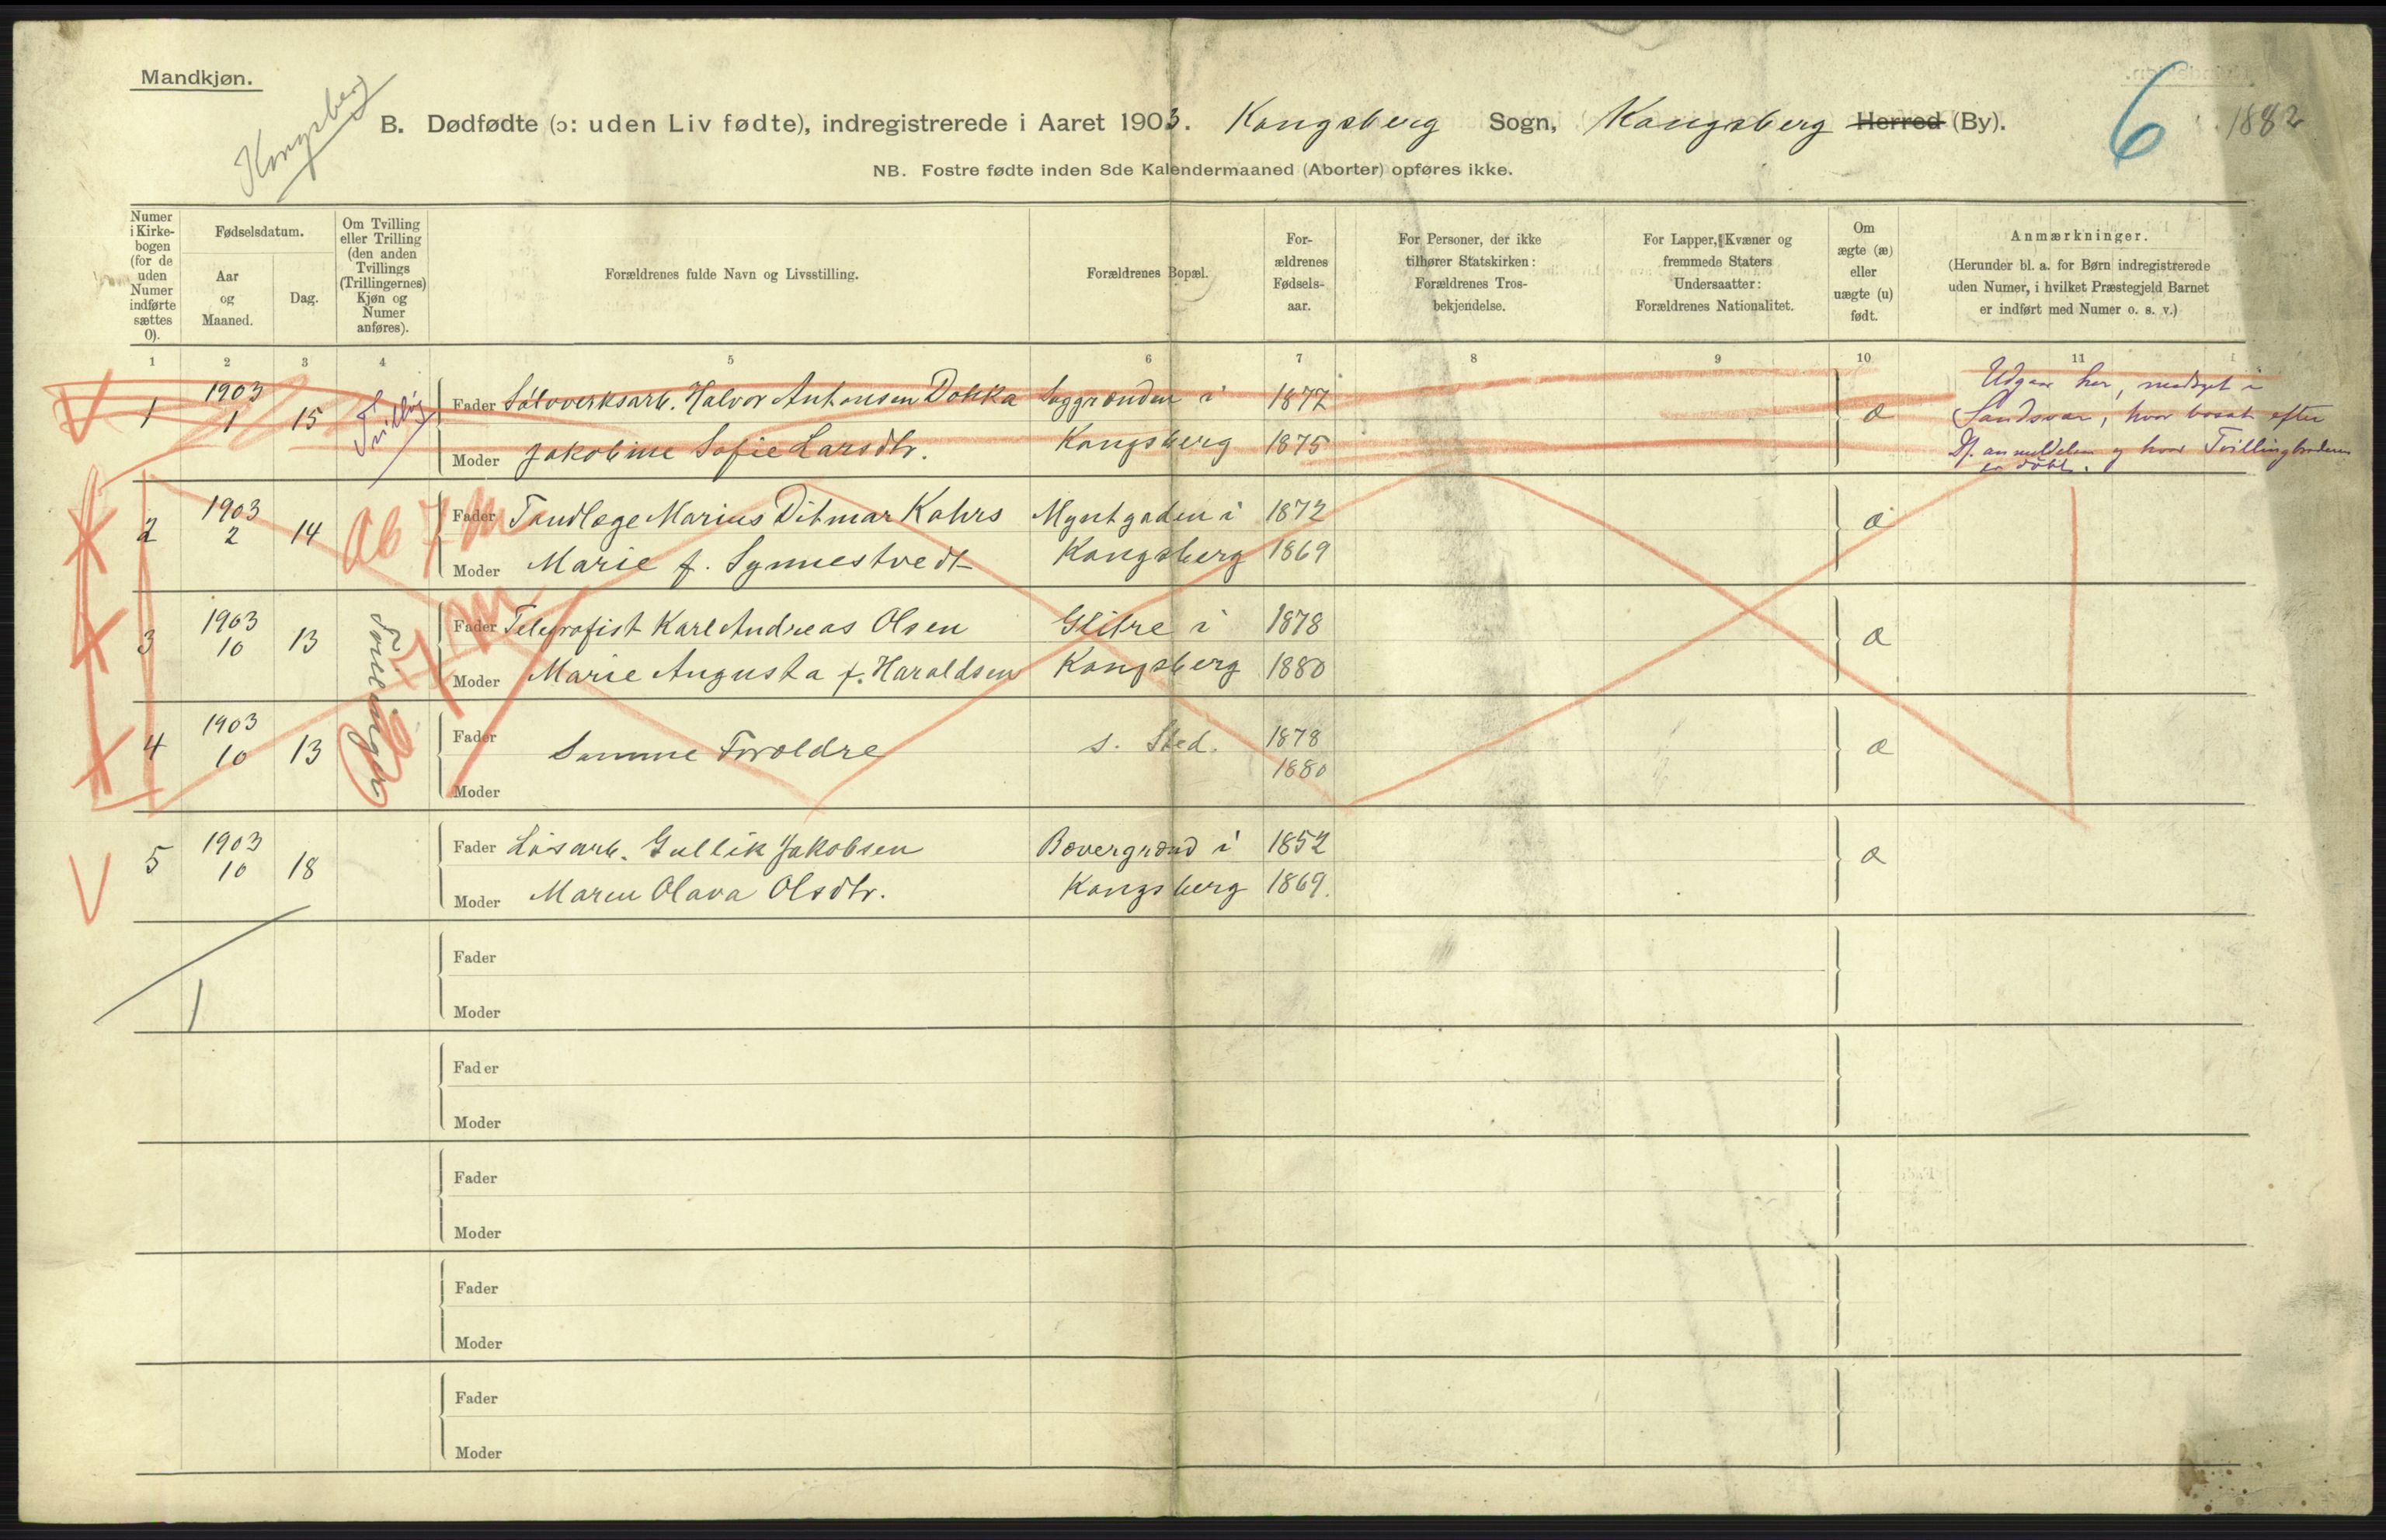 Mandkjøn.
Kongsberg
B. Dødfødte (ɔ: uden Liv fødte), indregistrerede i Aaret 1903. Kongsberg Sogn, Kongsberg Herred (By).
6
1882
NB. Fostre fødte inden 8de Kalendermaaned (Aborter) opføres ikke.
Numer
i Kirke-
bogen
(for de
uden
Numer
indførte
sættes
0).
Fødselsdatum.
Aar
og
Maaned.
Dag.
Om Tvilling
eller Trilling
(den anden
Tvillings
(Trillingernes)
Kjøn og
Numer
anføres).
Forældrenes fulde Navn og Livsstilling.
Forældrenes Bopæl.
For-
ældrenes
Fødsels-
aar.
For Personer, der ikke
tilhører Statskirken:
Forældrenes Tros-
bekjendelse.
For Lapper, Kvæner og
fremmede Staters
Undersaatter:
Forældrenes Nationalitet.
Om
ægte (æ)
eller
uægte (u)
født.
Anmærkninger.
(Herunder bl. a. for Børn indregistrerede
uden Numer, i hvilket Præstegjeld Barnet
er indført med Numer o. s. v.)
1 2 3 4 5 6 7 8 9 10 11
1 1903 1 15 Tvilling
Fader Sølvverksarb. Halvor Antonsen Dokka Saggrænden i 1877
Moder Jakobine Sofie Larsdtr. Kongsberg 1875
æ
Udgaar her, medtget i
Sandsvær, hvor bosat efter
Df. anmeldelsen og hvor Tvillingbroderen
er døbt.
2 1903 2 14 Ab 7 m
Fader Tandlæge Marius Ditmar Kahrs Myntgaden i 1872
Moder Marie f. Synnestvedt Kongsberg 1869
æ
3 1903 10 13 Tvillinger 7 m
Fader Telegrafist Karl Andreas Olsen Glitre i 1878
Moder Marie Augusta f. Haraldsen Kongsberg 1880
æ
4 1903 10 13
Fader Samme Forældre s. Sted. 1878
Moder 1880
æ
5 1903 10 18
Fader Løsarb. Gullik Jakobsen Bævergrænd i 1852
Moder Maren Olava Olsdtr. Kongsberg 1869.
æ
Fader
1
Moder
Fader
Moder
Fader
Moder
Fader
Moder
Fader
Moder